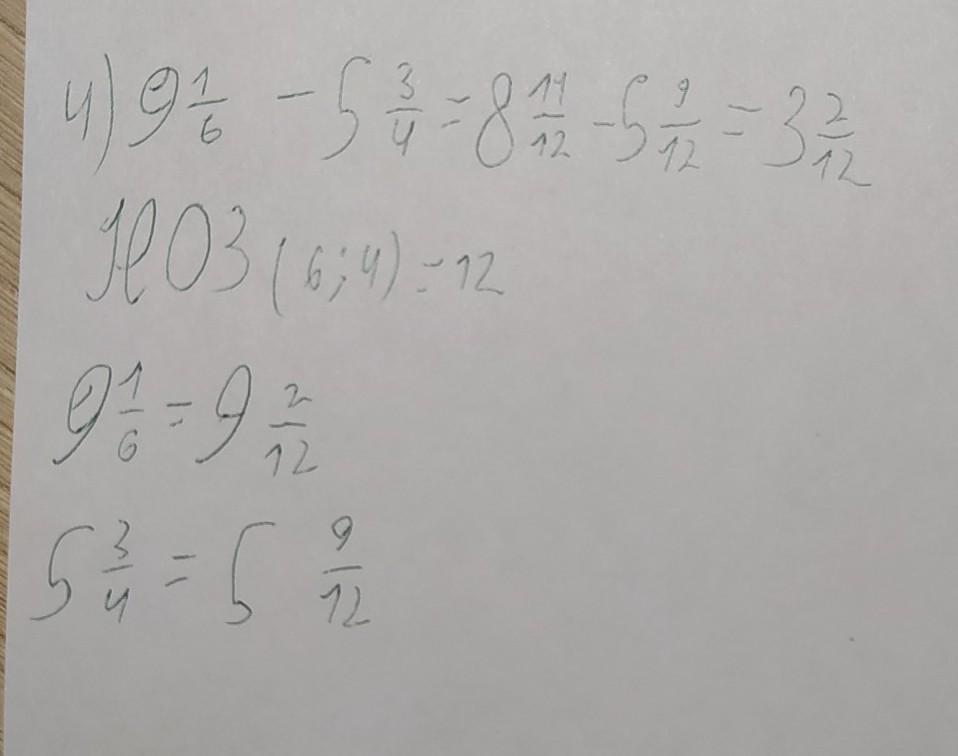 4) 9 1/6 - 5 3/4 = 8 11/12 - 5 9/12 = 3 2/12
НОЗ (6; 4) = 12
9 1/6 = 9 2/12
5 3/4 = 5 9/12